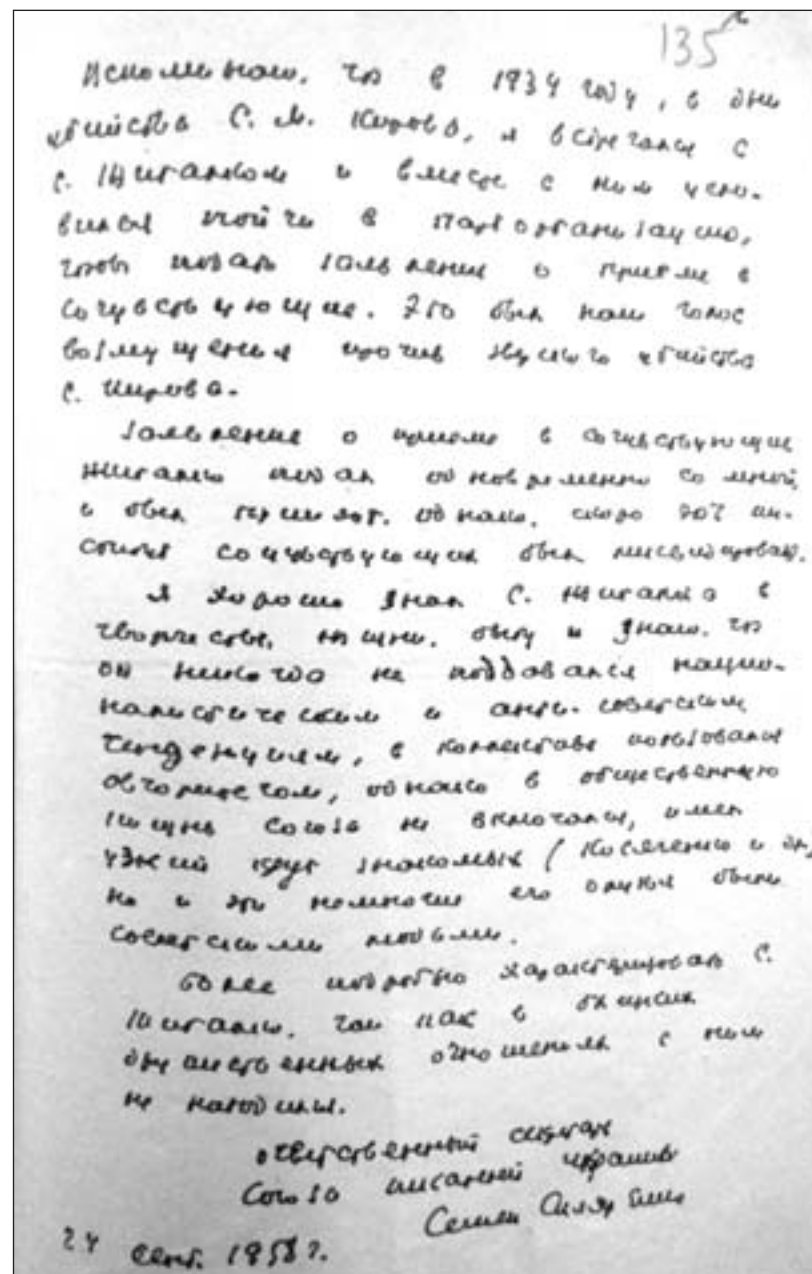 135
Вспоминаю, что в 1934 году, в дни
убийства С. М. Кирова, я встречался с
С. Жигалком и вместе с ним усло-
вился пойти в парторганизацию,
чтобы подать заявление о приеме в
сочувствующие. Это был наш голос
возмущения против гнусного убийства
С. Кирова.
Заявление о приеме в сочувствующие
Жигалко подал одновременно со мной,
и был принят. Однако, скоро этот ин-
ститут сочувствующих был ликвидирован.
Я хорошо знал С. Жигалко в
творчестве, жизни, быту и знаю, что
он никогда не поддавался нацио-
налистическим и анти-советским
тенденциям, в коллективе пользовался
авторитетом, однако в общественную
жизнь Союза не включался, имел
узкий круг знакомых (Косяченко и др.)
но и эти немногие его друзья были
советскими людьми.
более подробно характеризовать С.
Жигалко, так как в близких
дружественных отношениях с ним
не находился.
ответственный секретарь
Союза писателей Украины
Семен Скляренко
24 сент. 1958 г.